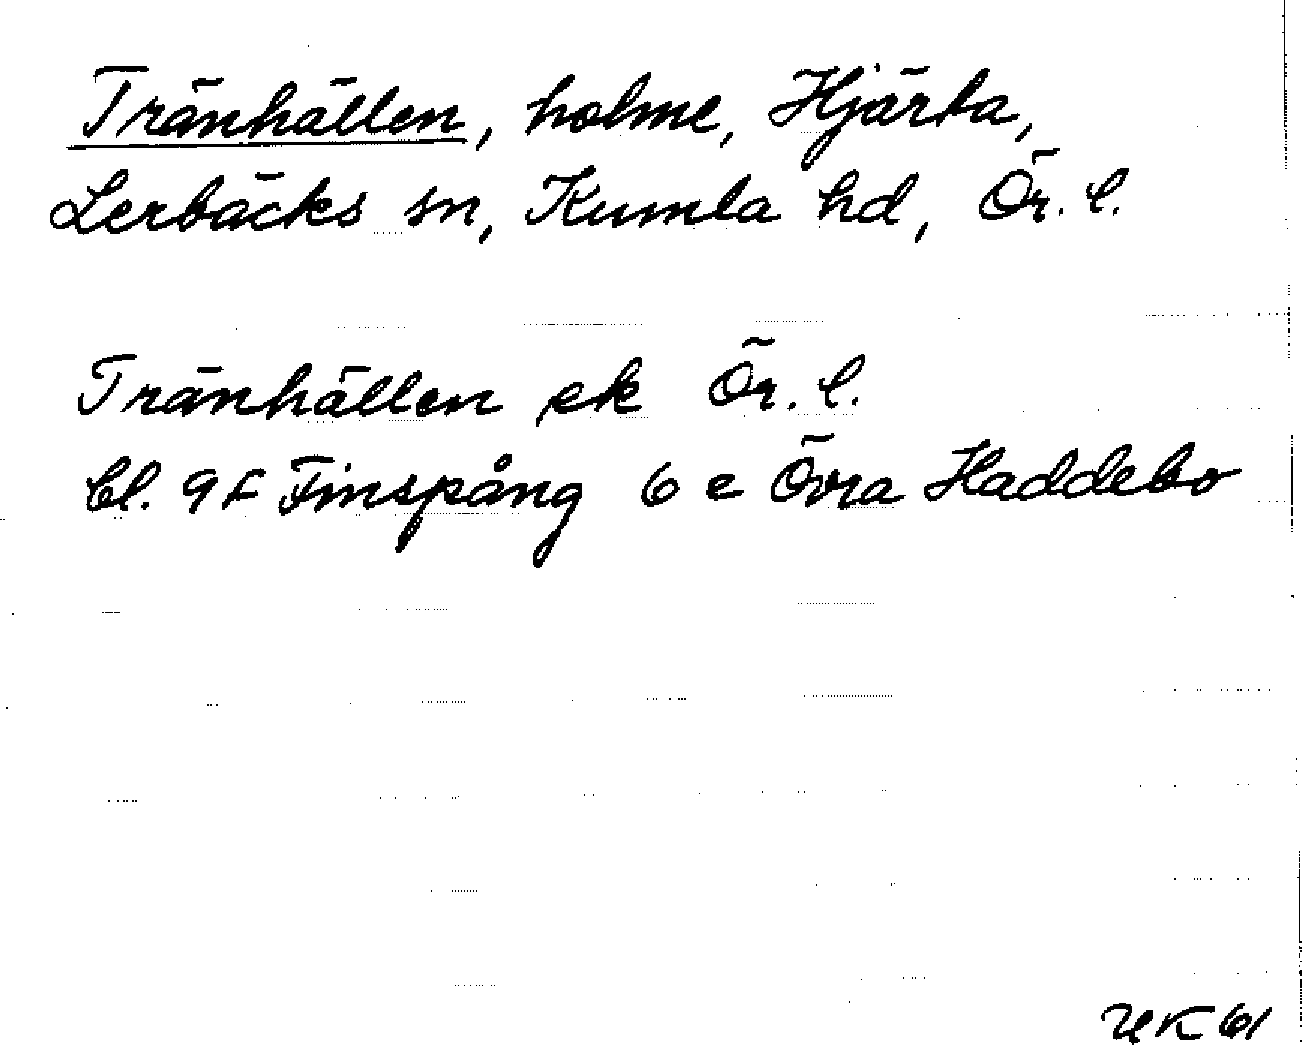 Tränhällen, holme, Hjärta,
Lerbäcks sn, Kumla hd, Ör. l.
Tränhällen ek Ör. l.
bl. 9F Finspång 6 e Övra Haddebo
UK 61